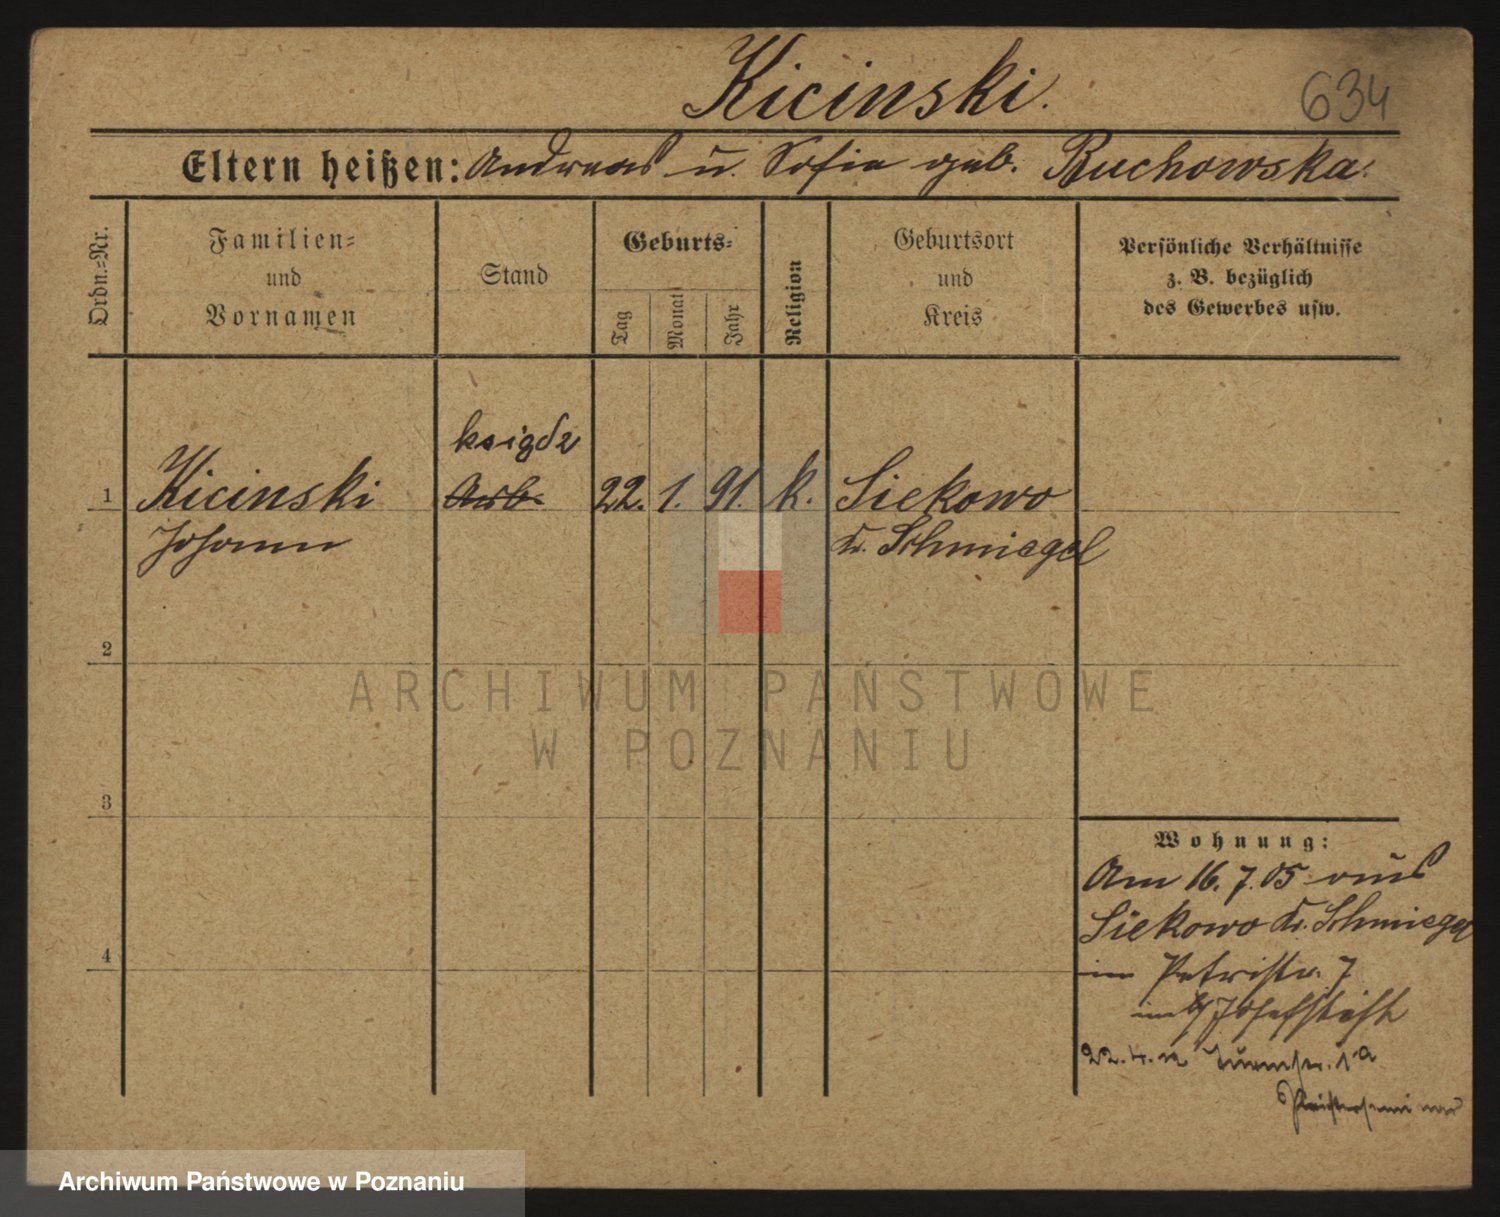 Kicinski.
634
Eltern heißen: Andreas u. Sofia geb. Buchowska.
Ordn.-Nr.
Familien-
und
Vornamen
Stand
Geburts-
Tag
Monat
Jahr
Religion
Geburtsort
und
Kreis
Persönliche Verhältnisse
z. B. bezüglich
des Gewerbes usw.
ksigdz
1 Kicinski Arb. 22. 1. 91. k. Siekowo
Johann Kr. Schmiegel
2
ARCHIWUM PAŃSTWOWE
W POZNANIU
3
Wohnung:
Am 16. 7. 05 aus
Siekowo Kr. Schmiegel
4
in Petristr. 7
im Josefstift
22. 4. 12 Turmstr. 1a
Priesterseminar
Archiwum Państwowe w Poznaniu